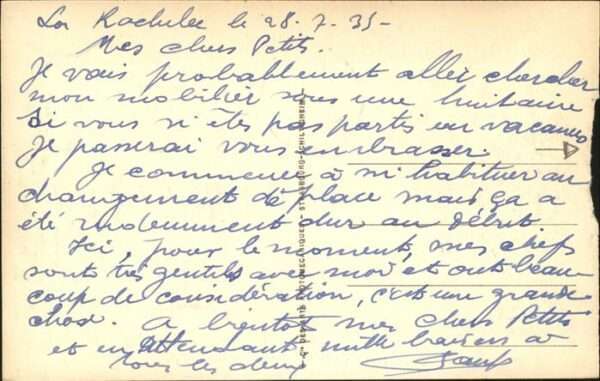 La Rochelle le 28.7.35-
Mes chers Petits.
Je vais probablement aller chercher
mon mobilier sous une huitaine
si vous n'êtes pas partis en vacances
Je passerai vous embrasser.
Je commence à m'habituer au
changement de place mais ça a
été rudement dur au début
Ici, pour le moment, mes chefs
sont très gentils avec moi et ont beau-
coup de considération, c'est une grande
chose. A bientôt mes chers Petits
et en attendant mille baisers à
tous les deux
STRASBOURG-SCHILTIGHEIM